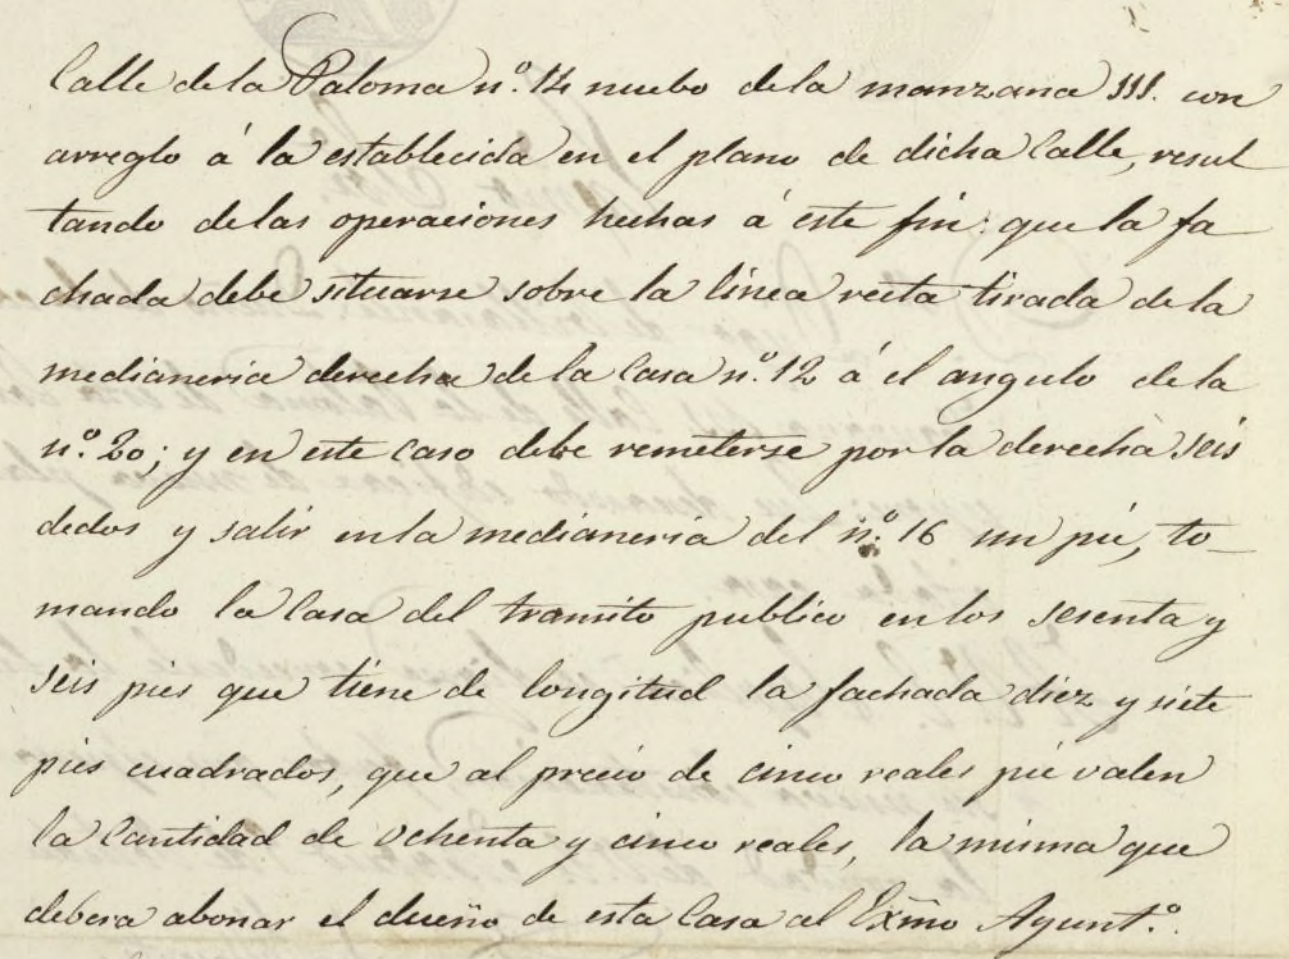 Calle de la Paloma n.º 14 nuebo de la manzana 111. con
arreglo á la establecida en el plano de dicha Calle, resul
tando de las operaciones hechas á este fin: que la fa
chada debe situarse sobre la linea recta tirada de la
medianeria derecha de la Casa n.º 12 á el angulo de la
n.º 20; y en este caso debe remeterse por la derecha seis
dedos y salir en la medianeria del n.º 16 un pié, to-
mando la Casa del transito publico en los sesenta y
seis pies que tiene de longitud la fachada diez y siete
pies cuadrados, que al precio de cinco reales pie valen
la Cantidad de ochenta y cinco reales, la misma que
debera abonar el dueño de esta Casa al Exmo Ayunt.º